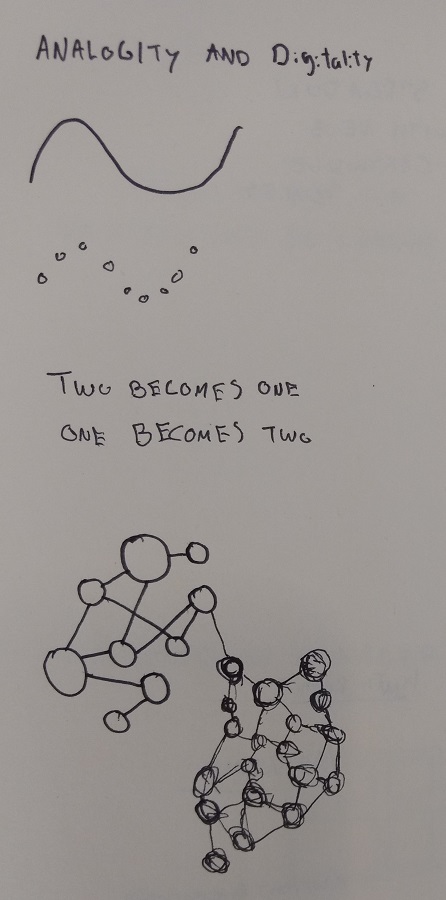 ANALOGITY AND Digitality
TWO BECOMES ONE
ONE BECOMES TWO